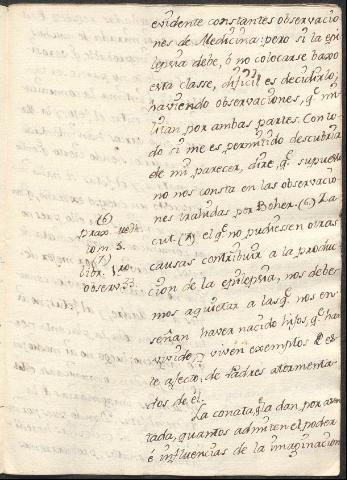 evidente constantes observacio
nes de Medicina: pero si la epi
lepsia debe, ô no colocarse baxo
esta classe, dificil es decidirlo,
haviendo observaciones, q.e mi
litan por ambas partes. Con to
do si me es permitido descubrir
de mi parecer, dire, q.e supuesto
no nos consta en las observacio
nes trahidas por Boher. (6) Za
cut. (7) el q.e no pudiesen otras
causas contribuir a la produc
cion de la epilepsia, nos debe
mos aquietar a las q.e nos en
señan haver nacido hijos, q.e han
vivido, y viven exemptos de es
te afecto, de Padres atormenta
dos de èl.
La conata, q.e la dan, por asen
tada, quantos admiten el poder
é influencias de la imaginacion
(6)
prax. med.
tom. 3.
(7)
libr. 1 
observ. 33.